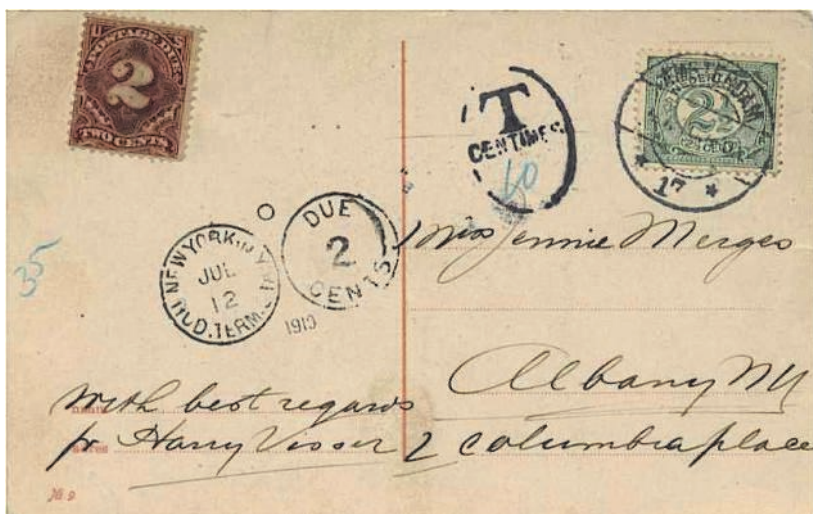 U S
POSTAGE DUE
2
TWO CENTS
T
CENTIMES
10
2½
CENT
AMSTERDAM
* 17 *
NEW YORK, N.Y.
JUL
12
HUD. TERM. STA.
DUE
2
CENTS
1910
35
Miss Jennie Merges
Albany NY
2 Columbia place
With best regards
fr Harry Visser
№ 9